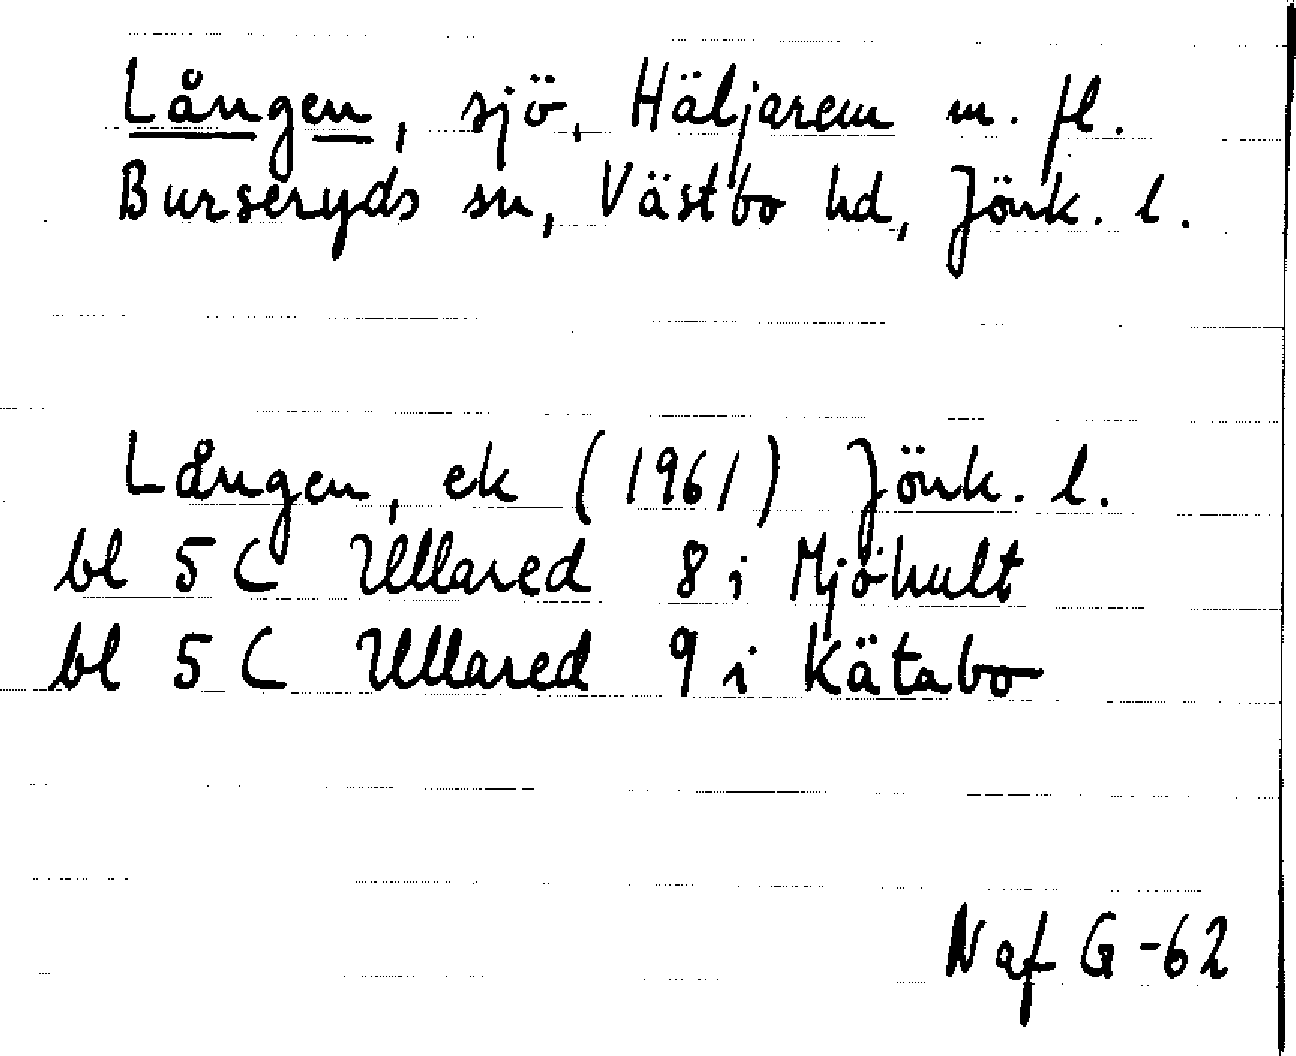 Lången, sjö, Häljarem m. fl.
Burseryds sn, Västbo hd, Jönk. l.
Lången, ek (1961) Jönk. l.
bl 5 C Ullared 8 i Mjöhult
bl 5 C Ullared 9 i Kätabo
N af G -62